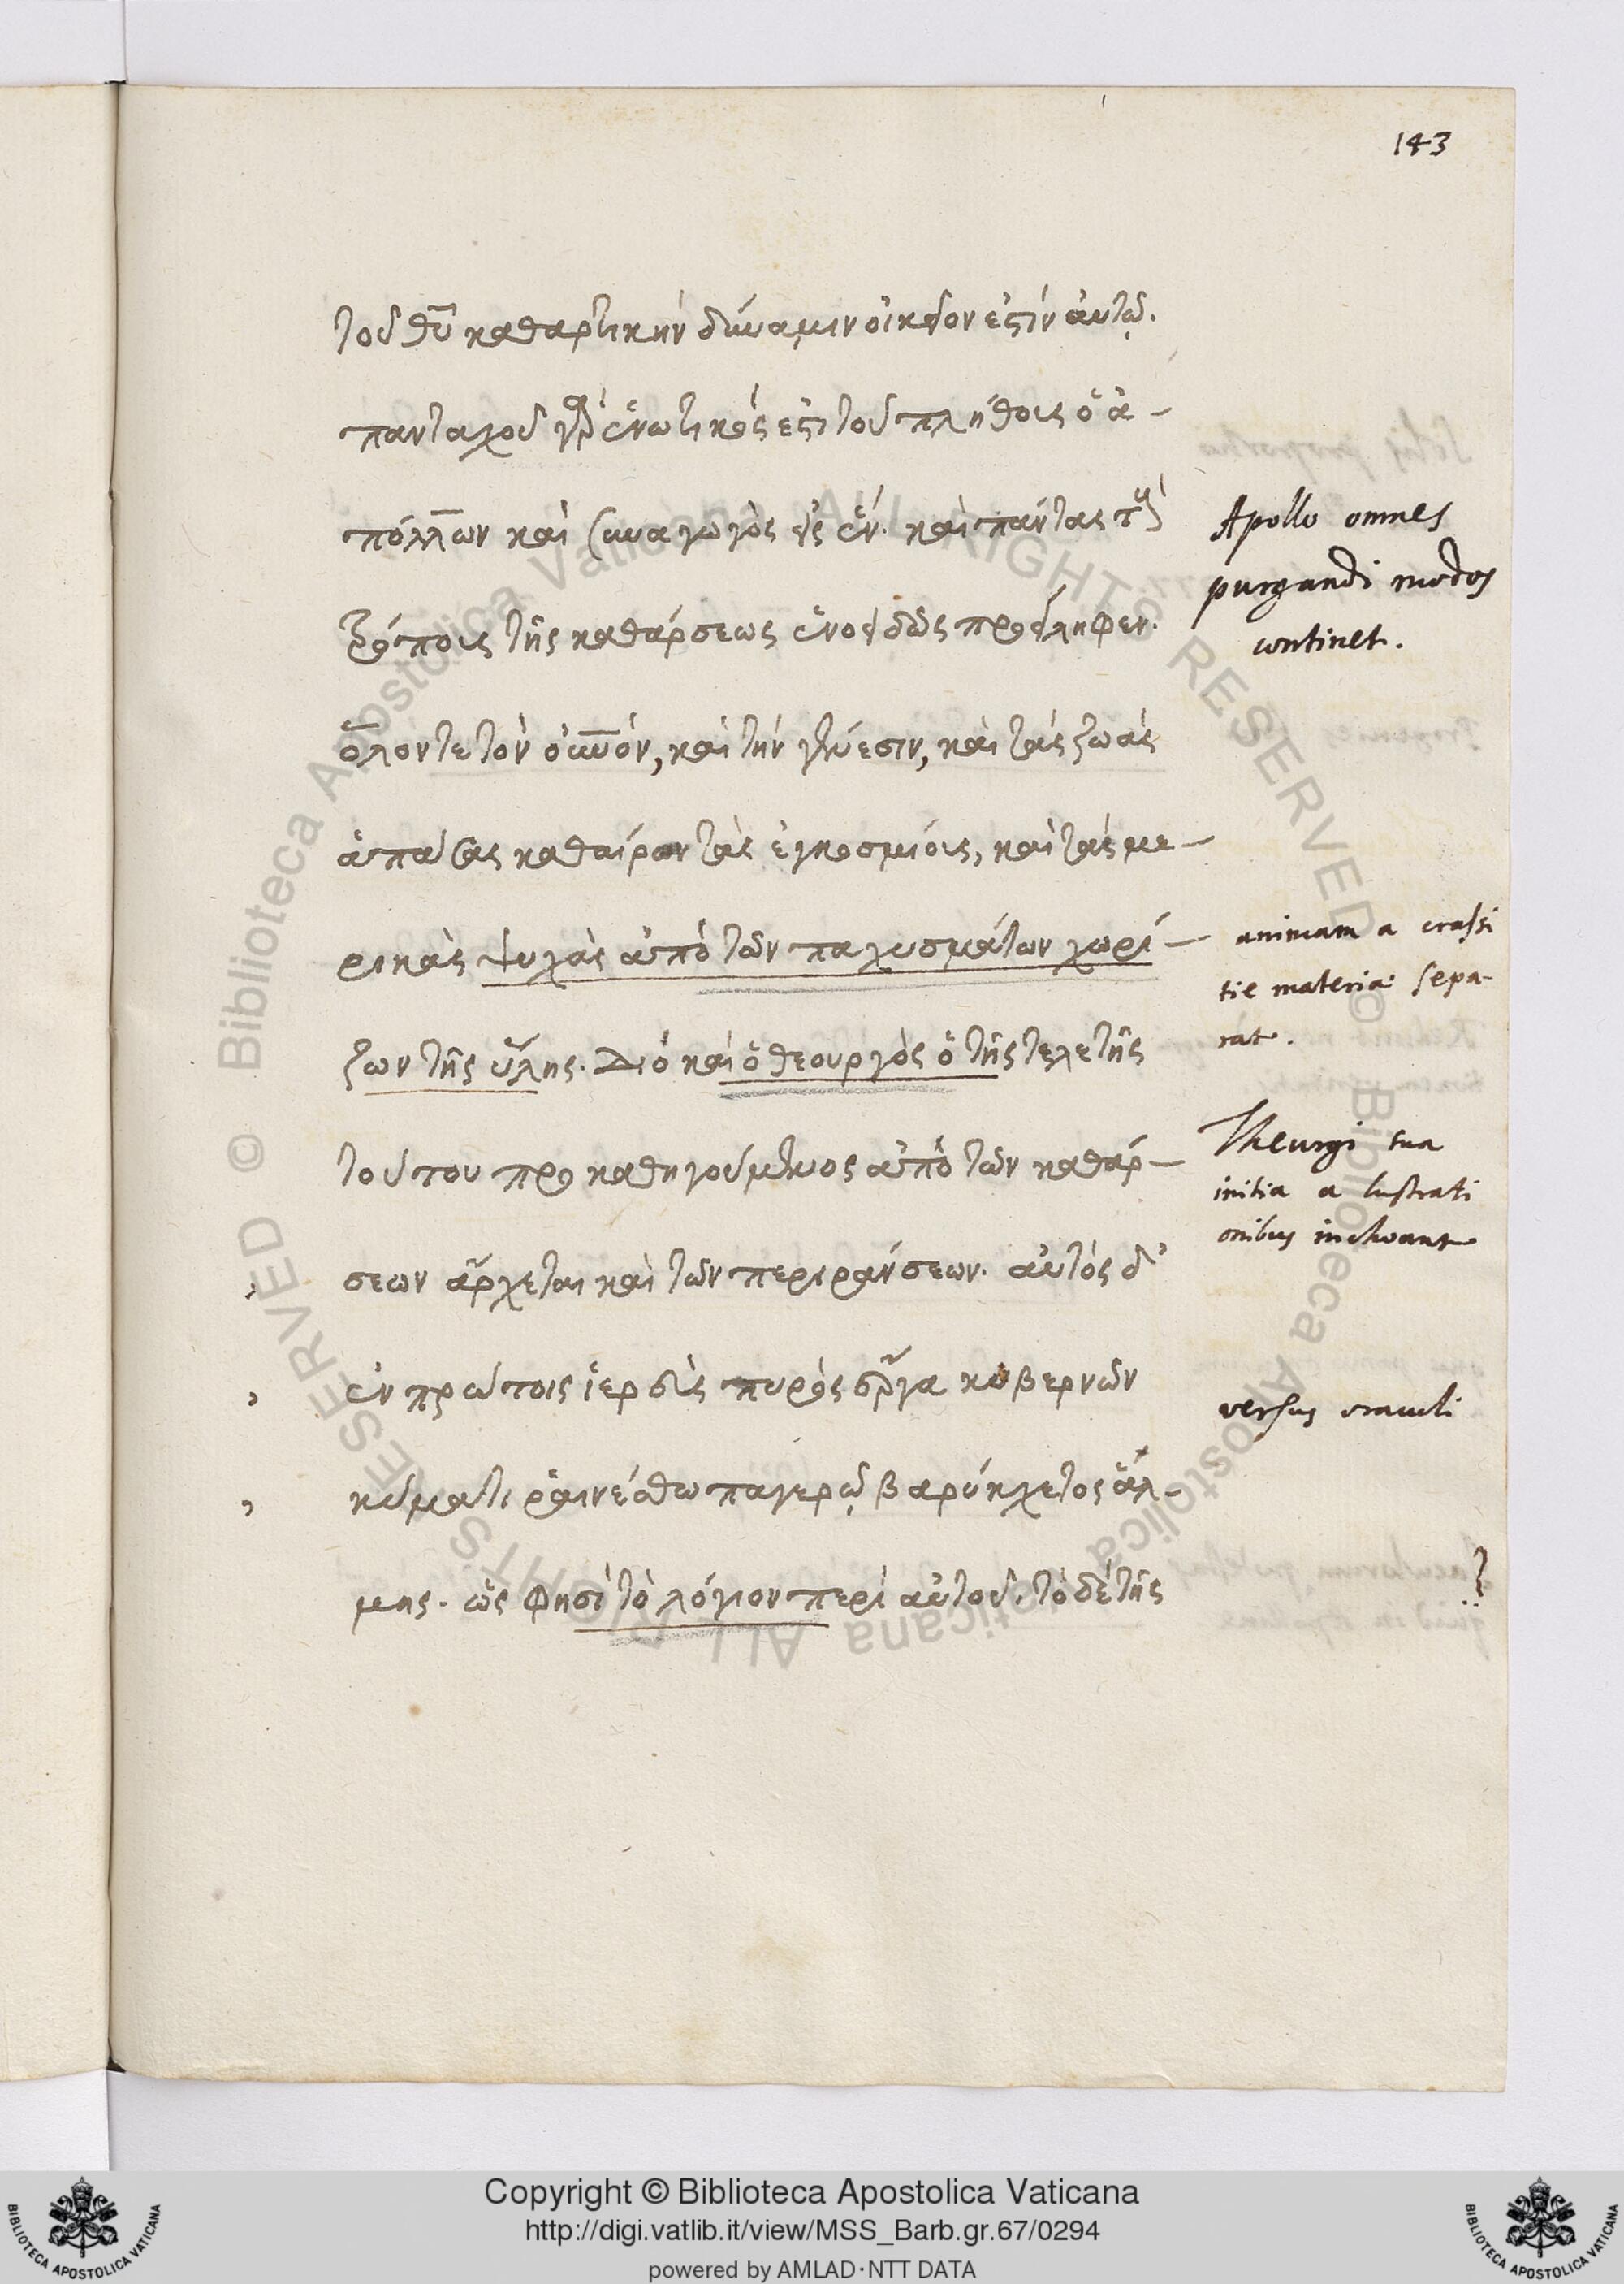 143
τοῦ θῦ καθαρτικὴν δύναμιν οἰκεῖον ἐστὶν αὐτῷ.
πανταχοῦ γὰρ ἑνωτικός ἐστι τοῦ πλήθους ὁ ἀ-
πόλλων καὶ συναγωγὸς εἰς ἕν. καὶ πάντας τοὺς
τρόπους τῆς καθάρσεως ἑνοειδῶς προείληφεν.
ὅλον τε τὸν οὐνὸν, καὶ τὴν γένεσιν, καὶ τὰς ζωὰς
ἁπάσας καθαίρων τὰς ἐγκοσμίους, καὶ τὰς με-
ρικὰς ψυχὰς ἀπὸ τῶν παχυσμάτων χωρί-
ζων τῆς ὕλης. Διὸ καὶ ὁ θεουργὸς ὁ τῆς τελετῆς
τούτου προκαθηγούμενος ἀπὸ τῶν καθάρ-
σεων ἄρχεται καὶ τῶν περιράνσεων. αὐτὸς δ'
ἐν πρώτοις ἱερεὺς πυρὸς ἔργα κυβερνῶν
κύματι ῥαινέσθω παγερῷ βαρυηχέτος ἅλ-
μης. ὥς φησὶ τὸ λόγιον περὶ αὐτοῦ. τὸ δὲ τῆς
Apollo omnes
purgandi modos
continet.
animam a crassi
tie materiæ sepa-
rat.
Theurgi sua
initia a lustrati
onibus inchoant
versus oraculi
Copyright © Biblioteca Apostolica Vaticana
http://digi.vatlib.it/view/MSS_Barb.gr.67/0294
powered by AMLAD·NTT DATA
BIBLIOTECA APOSTOLICA VATICANA
BIBLIOTECA APOSTOLICA VATICANA
© Biblioteca Apostolica Vaticana ALL RIGHTS RESERVED © Biblioteca Apostolica Vaticana ALL RIGHTS RESERVED